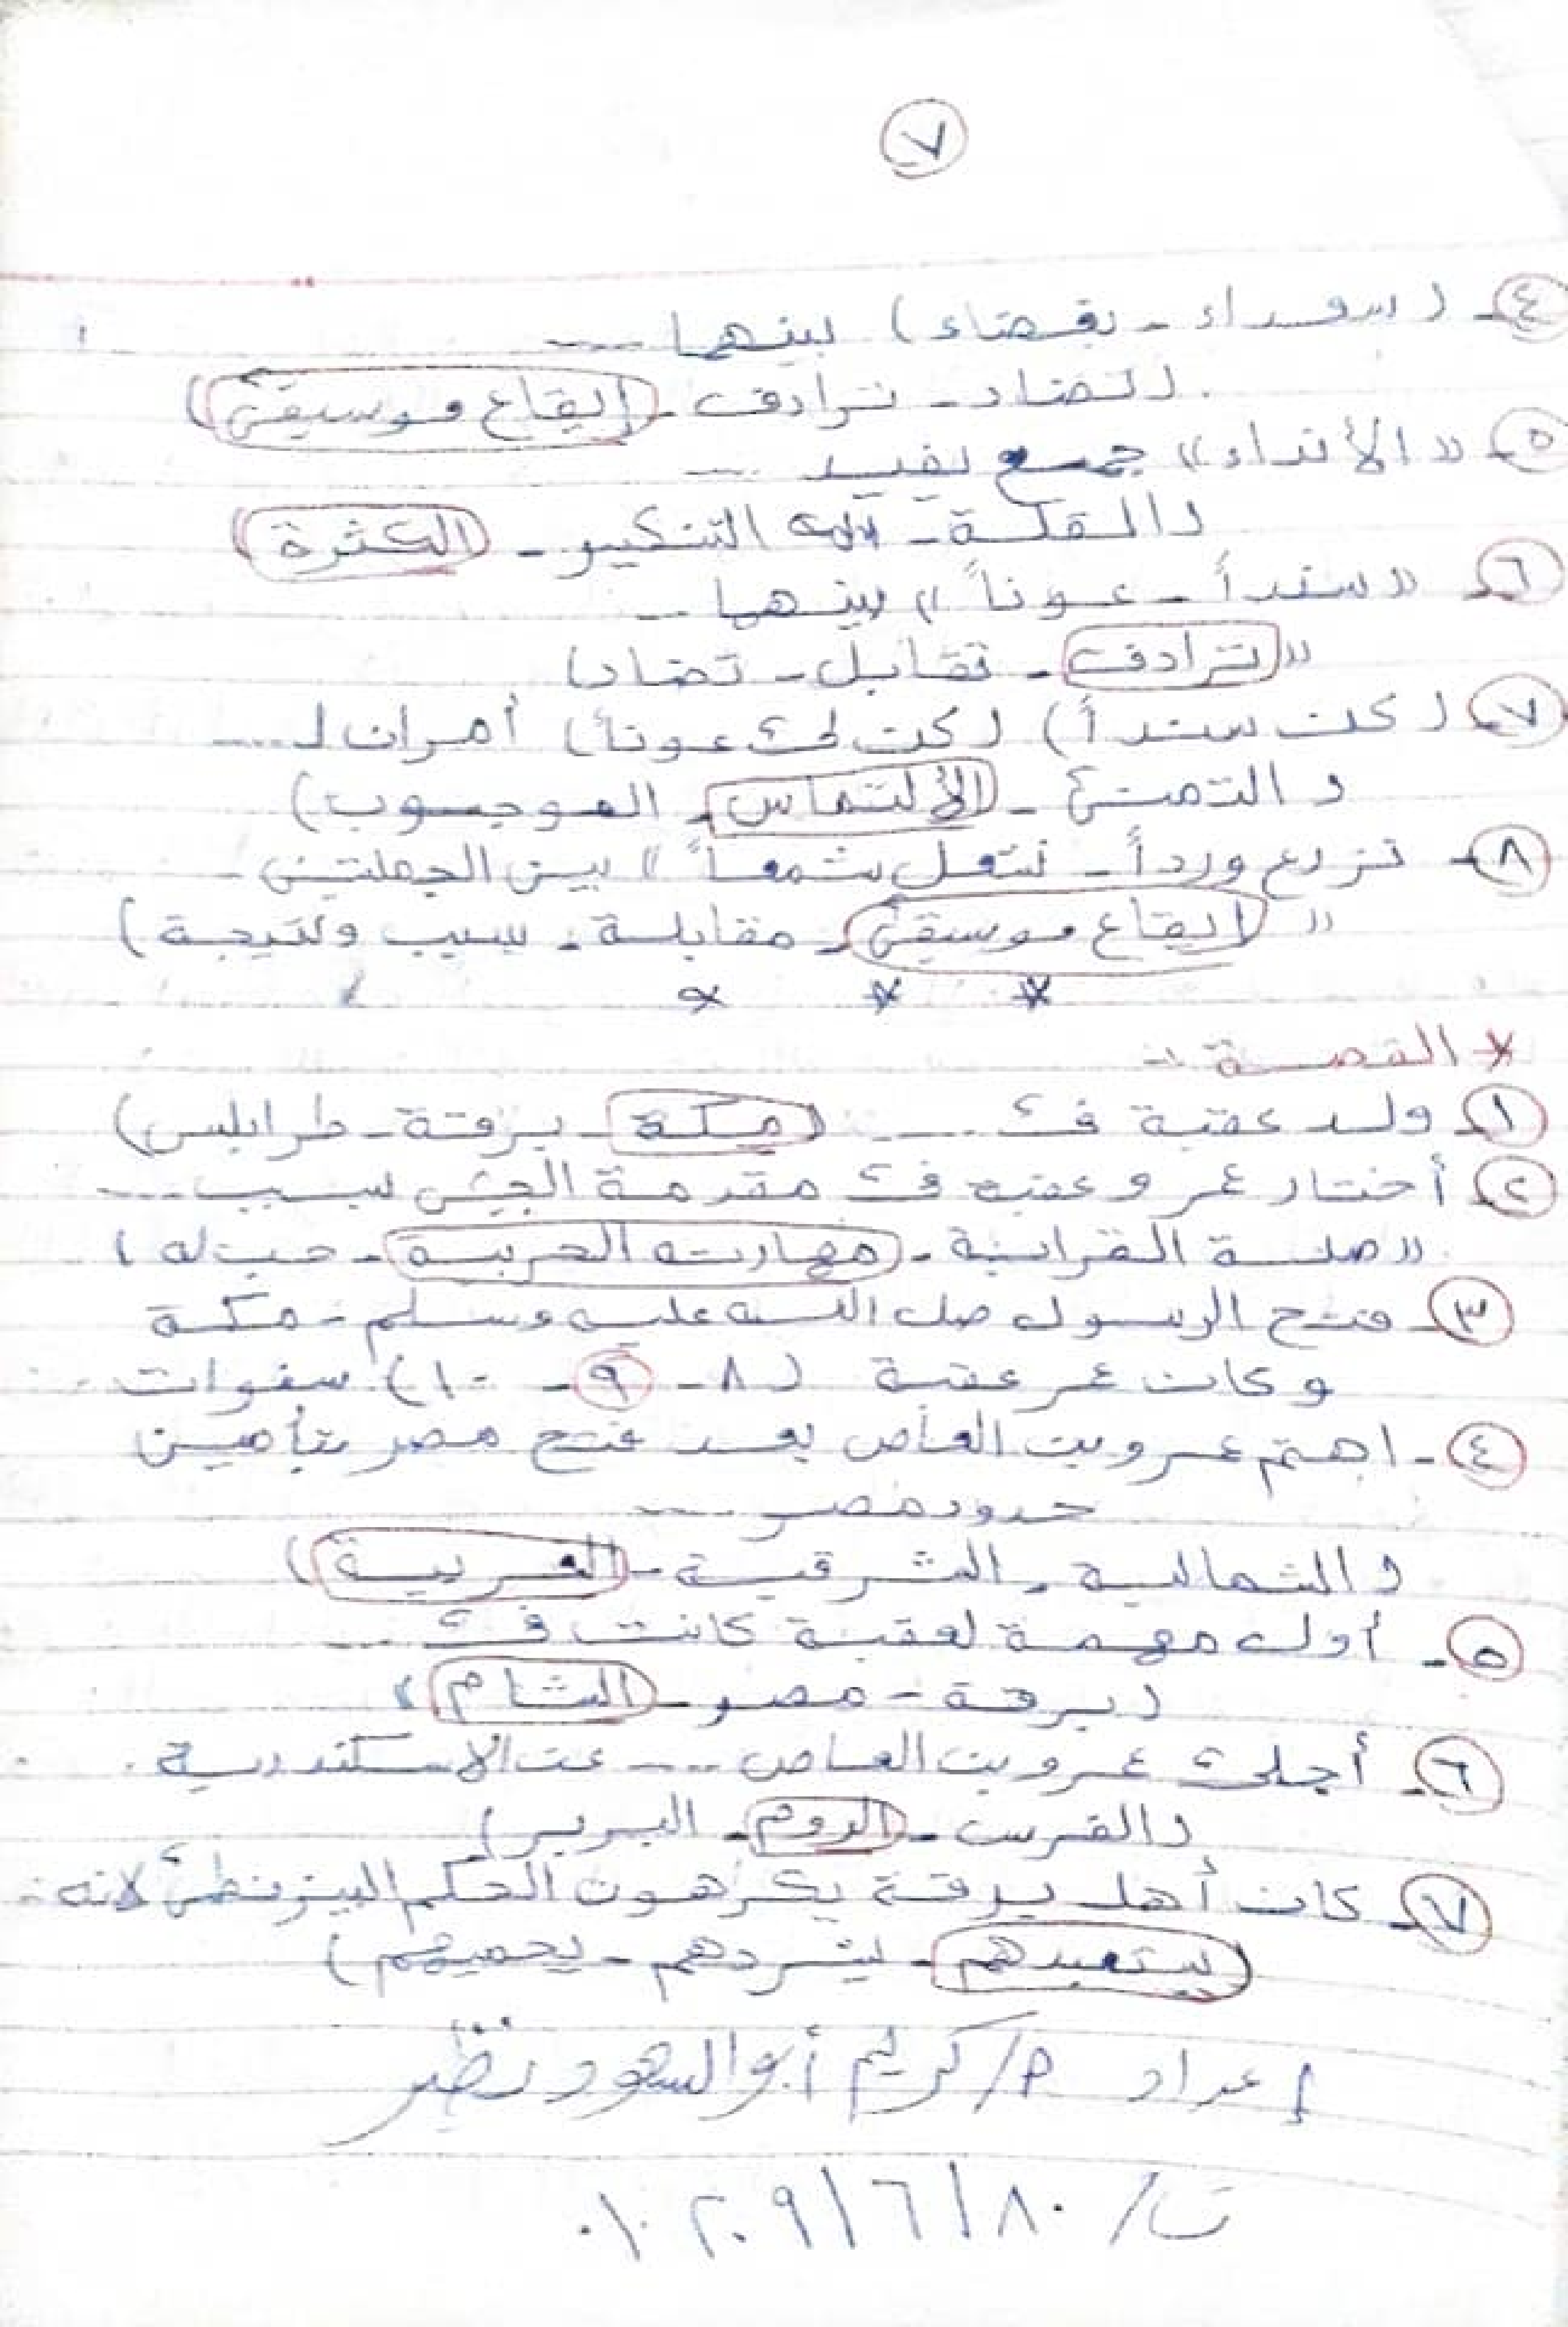 ٧
٤- (سوداء - بيضاء) بينهما ....
(تضاد - ترادف - إيقاع موسيقى)
٥- «الأنداء» جمع يفيد ....
(القلة - التنكير - الكثرة)
٦- «سنداً - عوناً» بينهما ...
«ترادف - تقابل - تضاد)
٧- (كن سنداً) (كن لى عوناً) أمران لـ ....
(التمنى - الألتماس - الوجوب)
٨- نزرع ورداً - نشعل شمعاً» بين الجملتين -
« إيقاع موسيقى - مقابلة - سبب ونتيجة)
* * *
* القصة :-
١- ولد عقبة فى .... (مكة - برقة - طرابلس)
٢- أختار عمرو عقبه فى مقدمة الجيش لسبب ....
«صلة القرابة - مهارته الحربية - حبه له)
٣- فتح الرسول صل الله عليه وسلم - مكة
وكان عمر عقبة (٨ - ٩ - ١٠) سنوات
٤- اهتم عمرو بن العاص بعد فتح مصر بتأمين
حدود مصر ....
(الشمالية - الشرقية - الغربية)
٥- أول مهمة لعقبة كانت فى ....
(برقة - مصر - الشام)
٦- أجلى عمرو بن العاص .... عن الاسكندرية
(الفرس - الروم - البربر)
٧- كان أهل برقة يكرهون الحكم البيزنطى لانه
(يستعبدهم - يشردهم - يحميهم)
إعداد م/ كريم أبو السعود نظير
ت/ ٠١٠٢٠٩١٦١٨٠